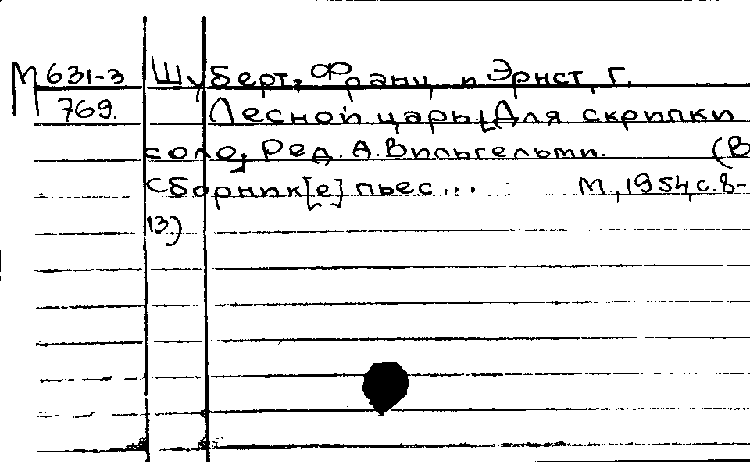 М 631-3 Шуберт, Франц и Эрнст, Г.
769. Лесной царь. [Для скрипки
соло]. Ред. А. Вильгельми. (В
сборник[е] пьес... М., 1954, с. 8-
13.)